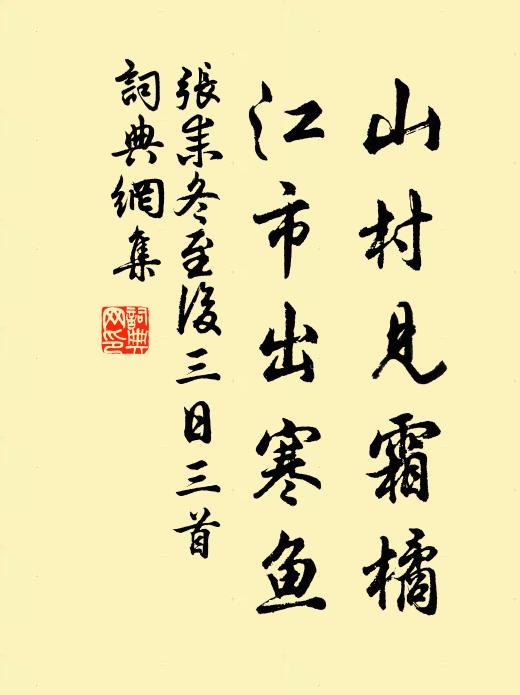 山村見霜橘
江市出寒鱼
張耒冬至後三日三首
詞典網集
詞典网印